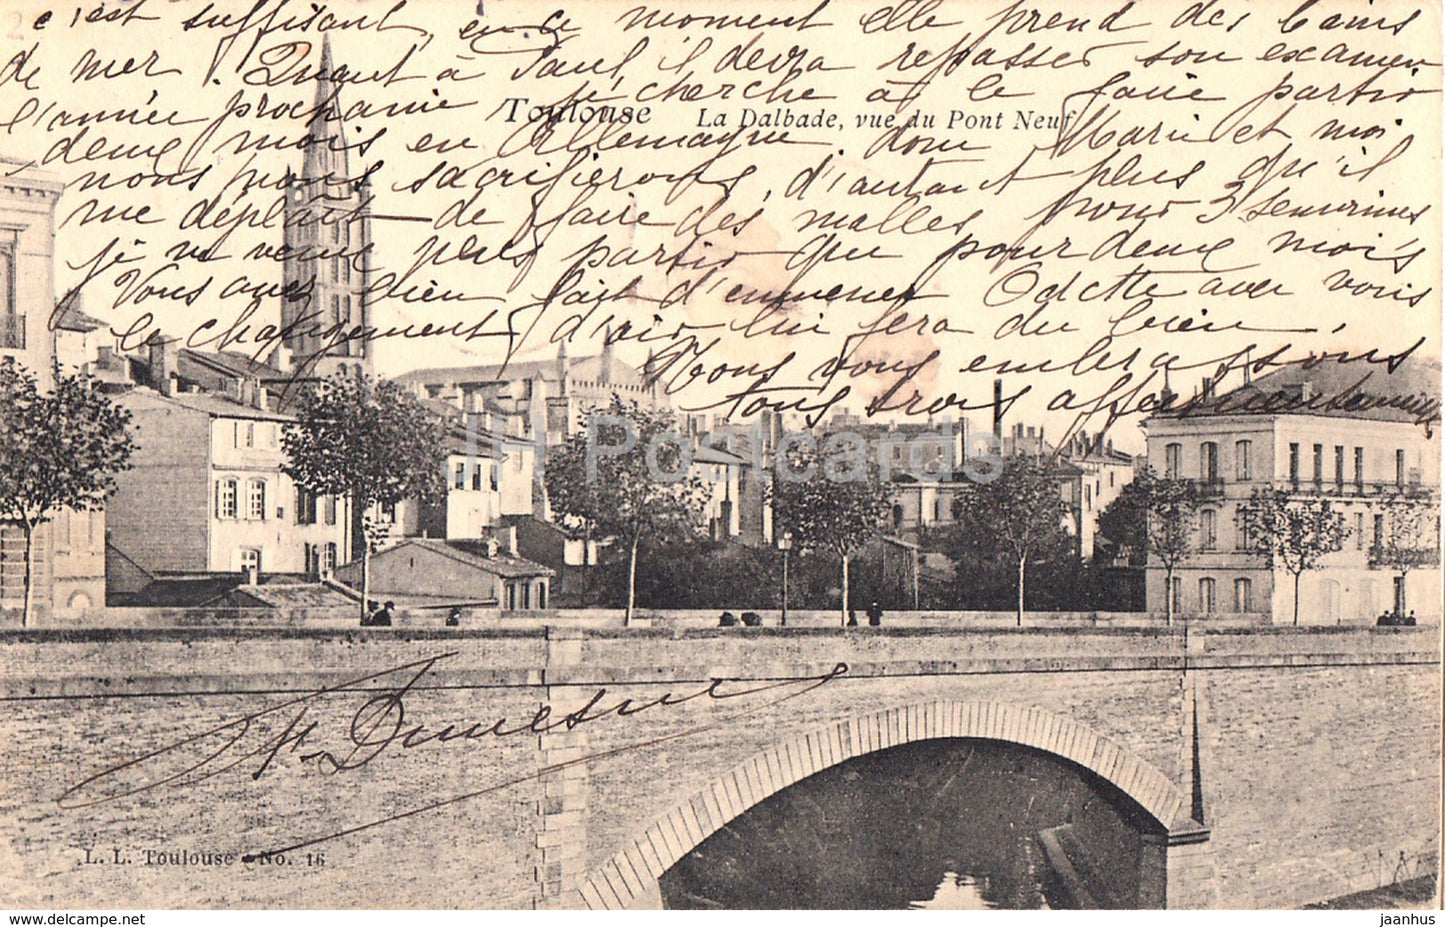 c'est suffisant, en ce moment elle prend des bains
de mer. Quant à Paul, il devra repasser son examen
l'année prochaine je cherche à le faire partir
Toulouse La Dalbade, vue du Pont Neuf
deux mois en Allemagne, dont Marie et moi
nous nous sacrifierons, d'autant plus qu'il
me déplaît de faire des malles pour 3 semaines
je ne veux plus partir que pour deux mois
Vous avez bien fait d'emmener Odette avec vous
le changement d'air lui fera du bien.
Nous vous embrassons
tous trois affectueusement
JH Postcards
Dumesnil
L. L. Toulouse - No. 16
jaanhus
© www.delcampe.net